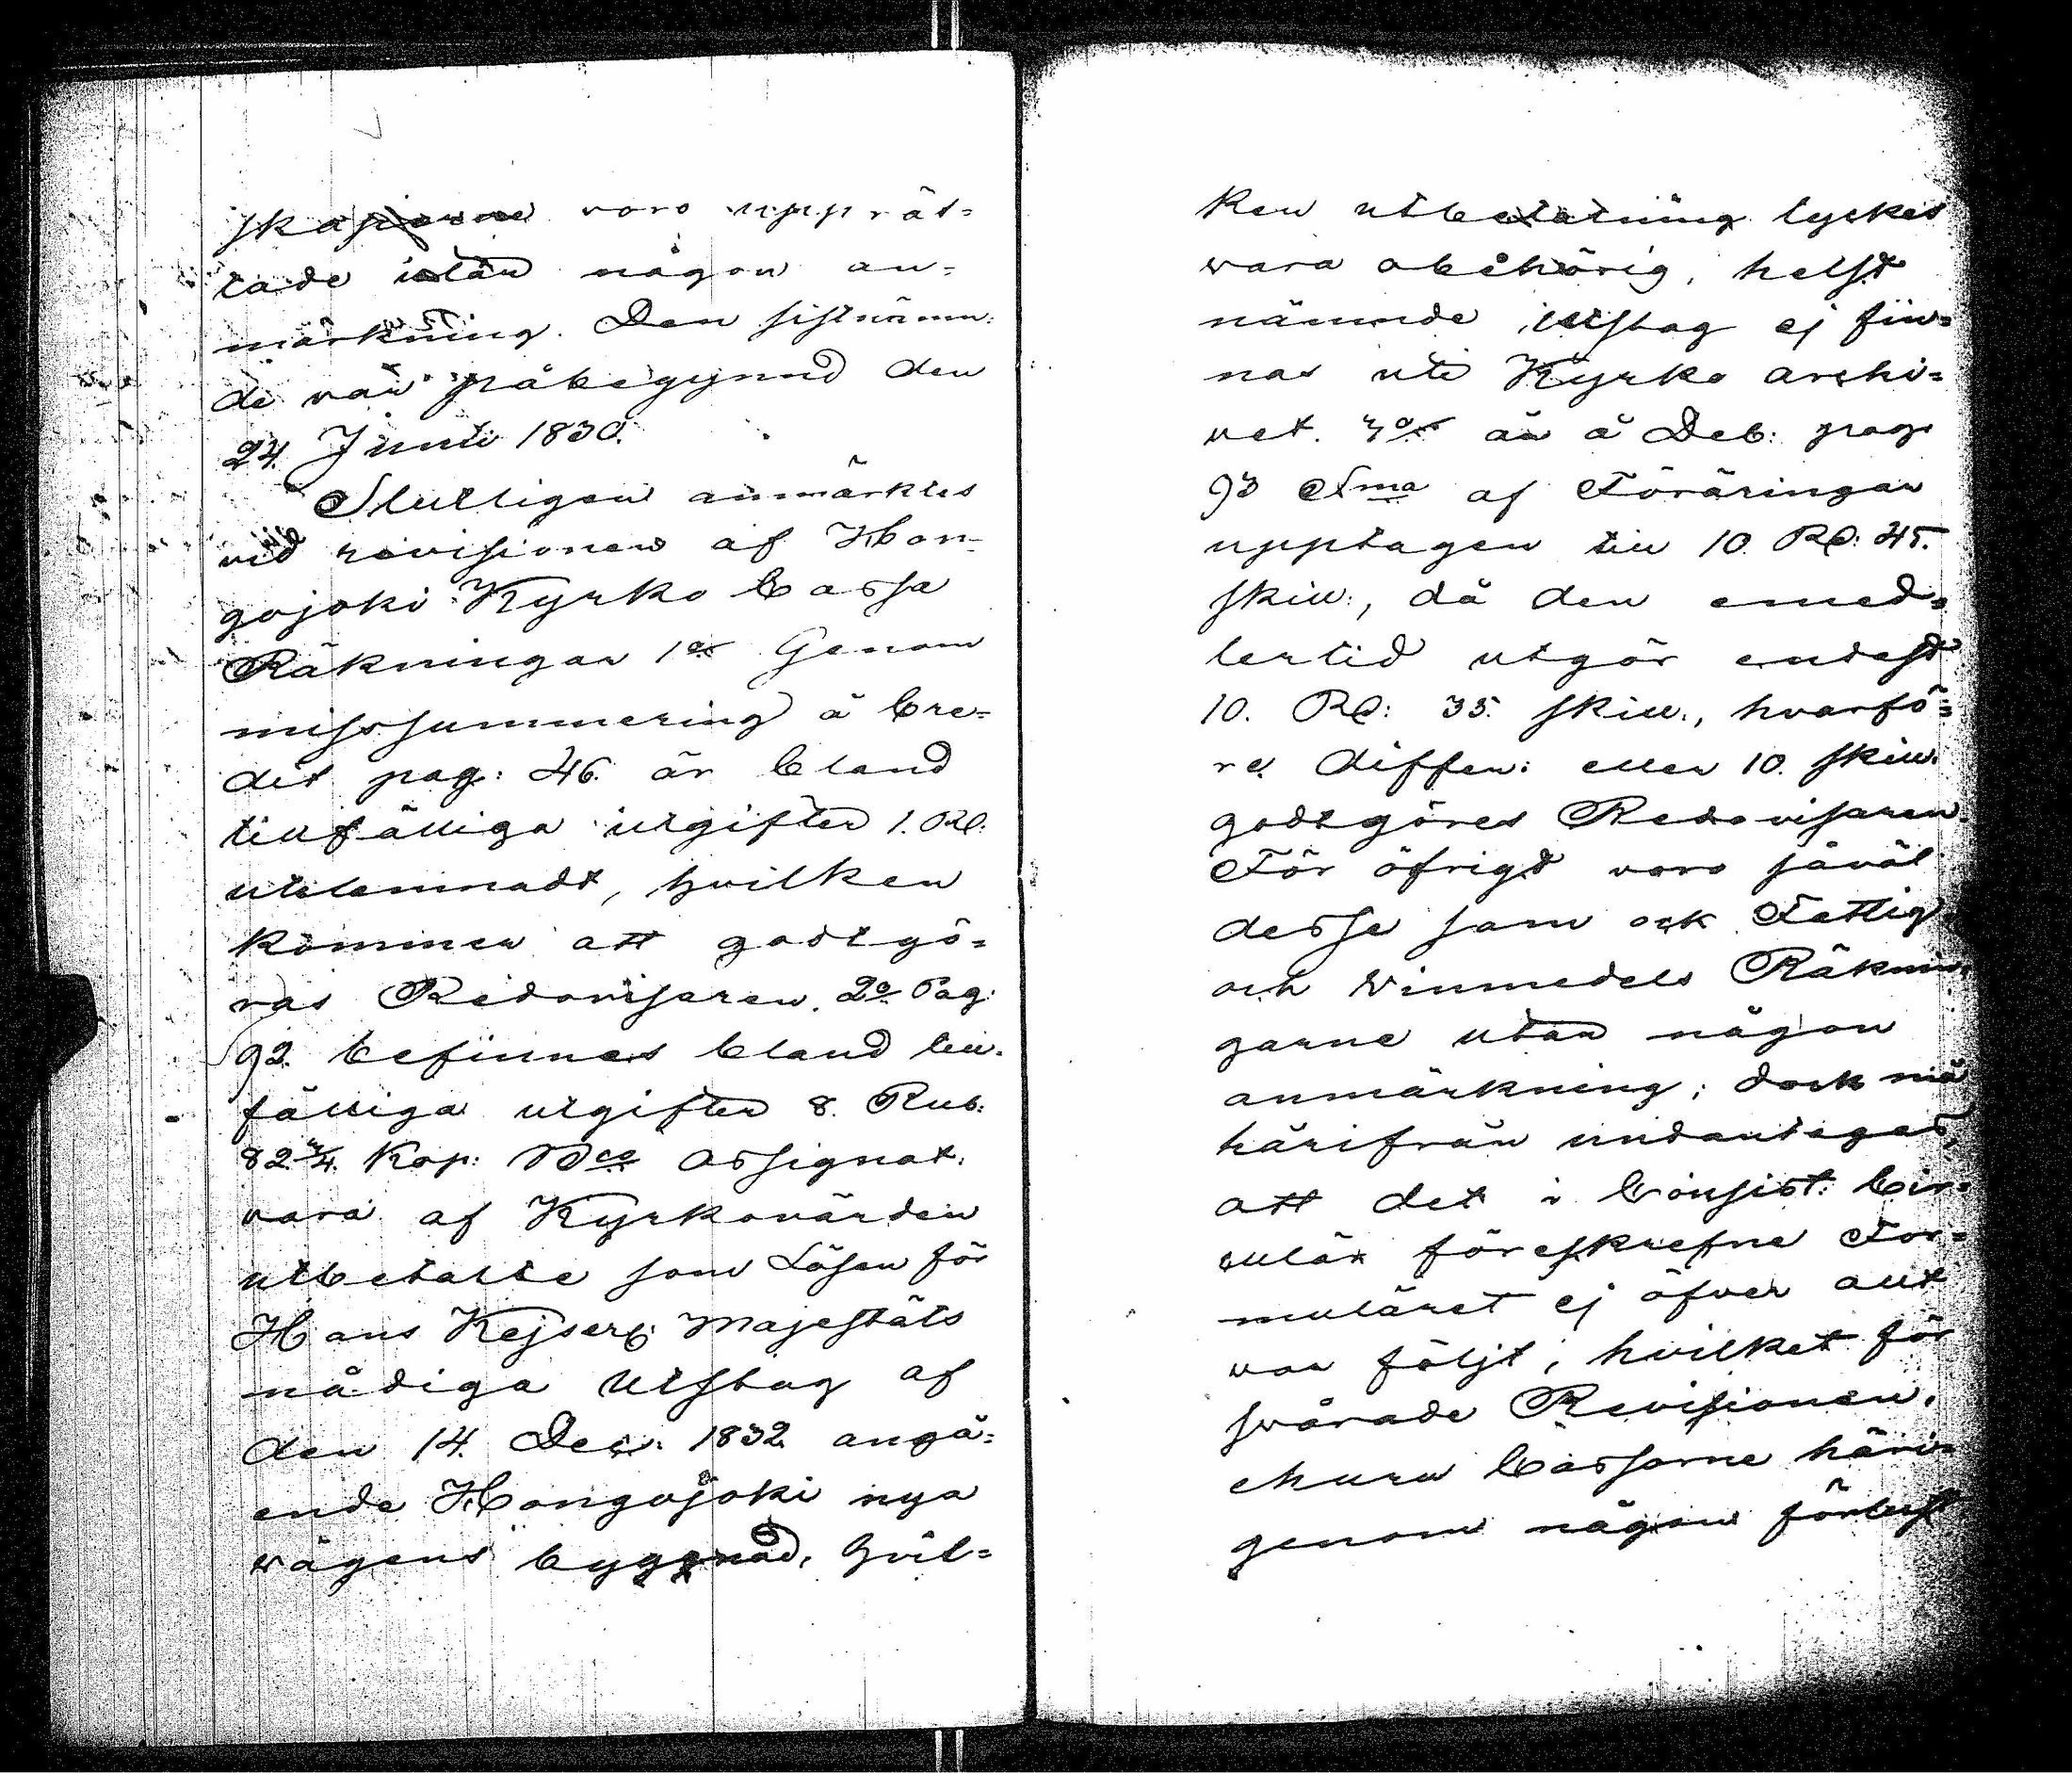 skaperne voro upprät=
tade utan någon an=
märkning. Den sistnämn=
de var påbegynnd den
24. Junii 1830.
Slutligen anmärktes
vid revisionen af Hon=
gojoki Kyrko Cassa
Räkningar 1o Genom
missummering å Cre=
dit pag: 46. är bland
tillfälliga utgifter 1. RD:
utelemnadt, hvilken
kommer att godtgö=
ras Redovisaren. 2o Pag:
92. befinnes bland till=
fälliga utgifter 8. Rub:
82 3/4. Kop: Bco Assignat.
vara af Kyrkovärden
utbetalte som Lösen för
Hans Kejserl: Majestäts
nådiga Utslag af
den 14. Dec: 1832 angå=
ende Hongojoki nya
vägens byggnad, hvil=
ken utbetalning tyckes
vara obehörig, helst
nämnde utslag ej fin=
nas uti Kyrko archi=
vet. 3o är å Deb: pag.
93 Sma af Föräringar
upptagen till 10. RD: 45.
skill:, då den emed=
lertid utgör endast
10. RD: 35. skill., hvarfö=
re differ: eller 10. skill.
godtgöres Redovisaren.
För öfrigt voro såväl
desse som ock Fattig
och Vinmedels Räknin=
garne utan någon
anmärkning; dock må
härifrån undantagas,
att det i Consist: Cir=
culär föreskrefne For=
muläret ej öfver allt
var följt, hvilket för
svårade Revisionen,
ehuru Cassorne häri=
genom någon förlust